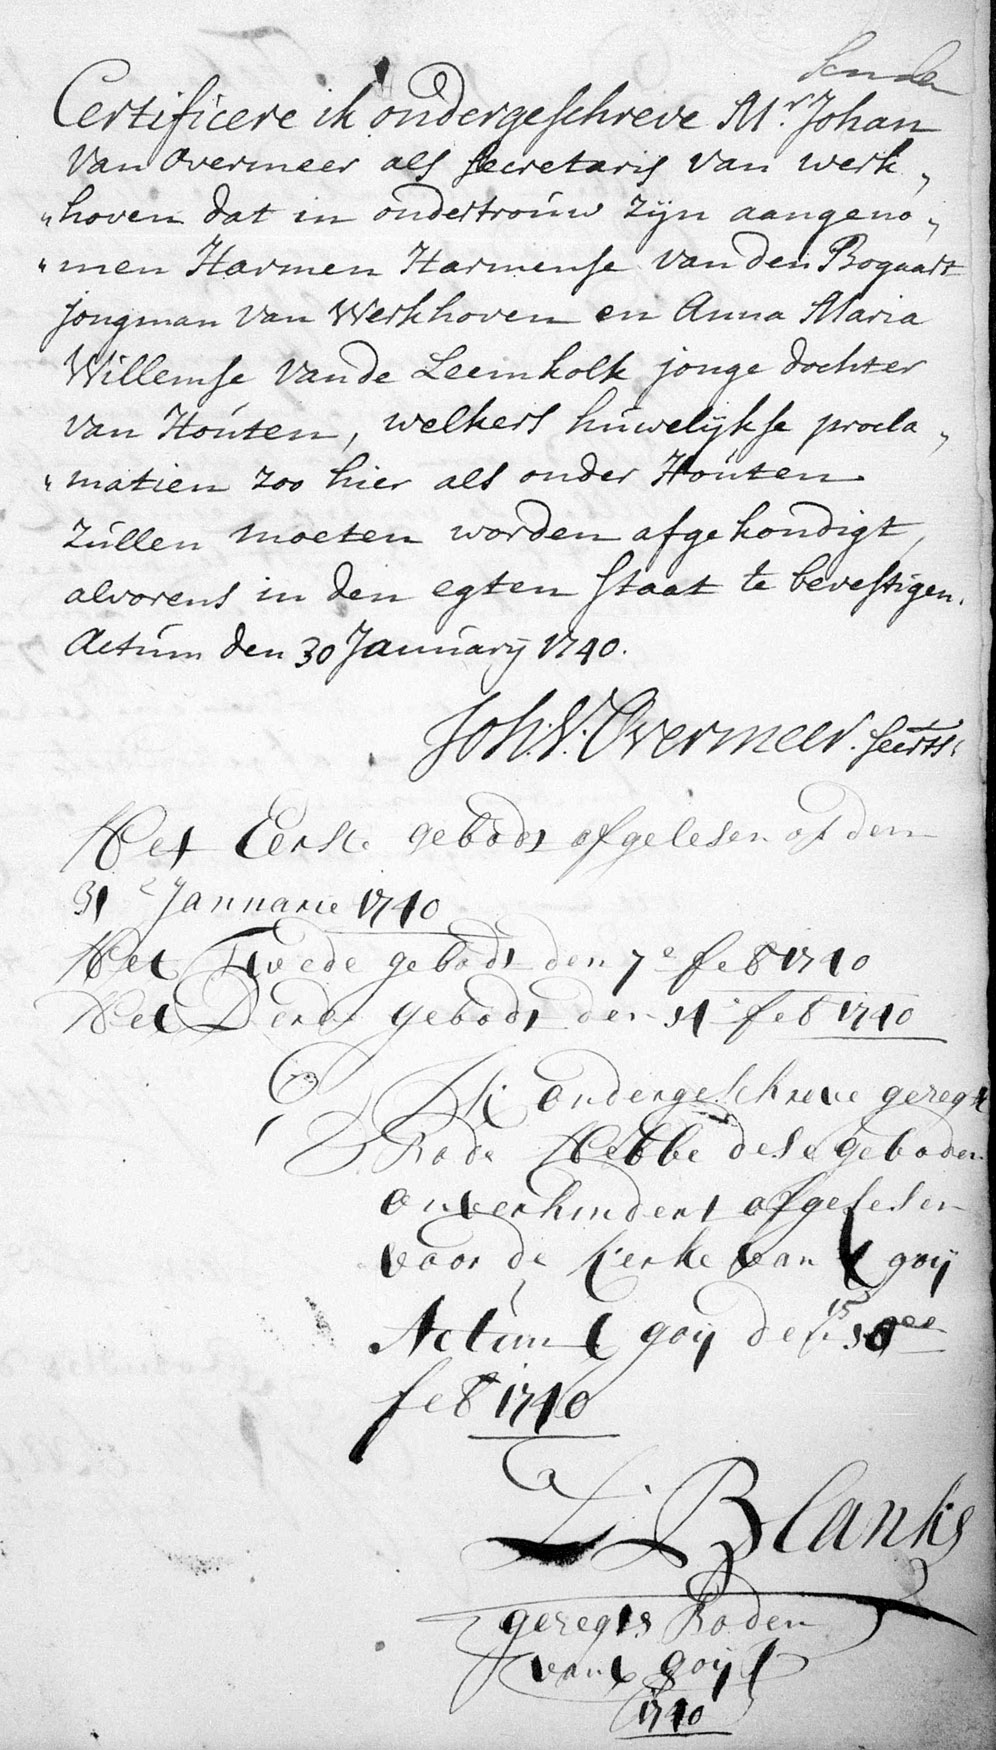 Certificere ik ondergeschreve Mr. Johan
Van Overmeer als Secretaris van werk„
„hoven dat in ondertroúw zijn aangeno„
„men Harmen Harmense van den Bogaart
jongman van Werkhoven en Anna Maria
Willemse Van de Leemkolk jonge dochter
van Hoúten, welkers húwelijkse procla„
„matien zoo hier als onder Hoúten
zúllen moeten worden afgekondigt,
alvorens in den egten staat te bevestigen.
Actúm den 30 Janúarij 1740.
Joh: V: Overmeer. Secrts.
Het Eerste gebodt afgelesen op den
31e Jannarie 1740
Het Twede gebodt den 7e feb 1740
Het Derde gebodt den 14e feb 1740
Ik ondergeschreve geregt
Bode Hebbe dese geboden
onverhindert afgelesen
voor de kerke van t goij
Actúm t goij den 15
feb 1740
L. Blanks
geregts Boden
van t goij
1740